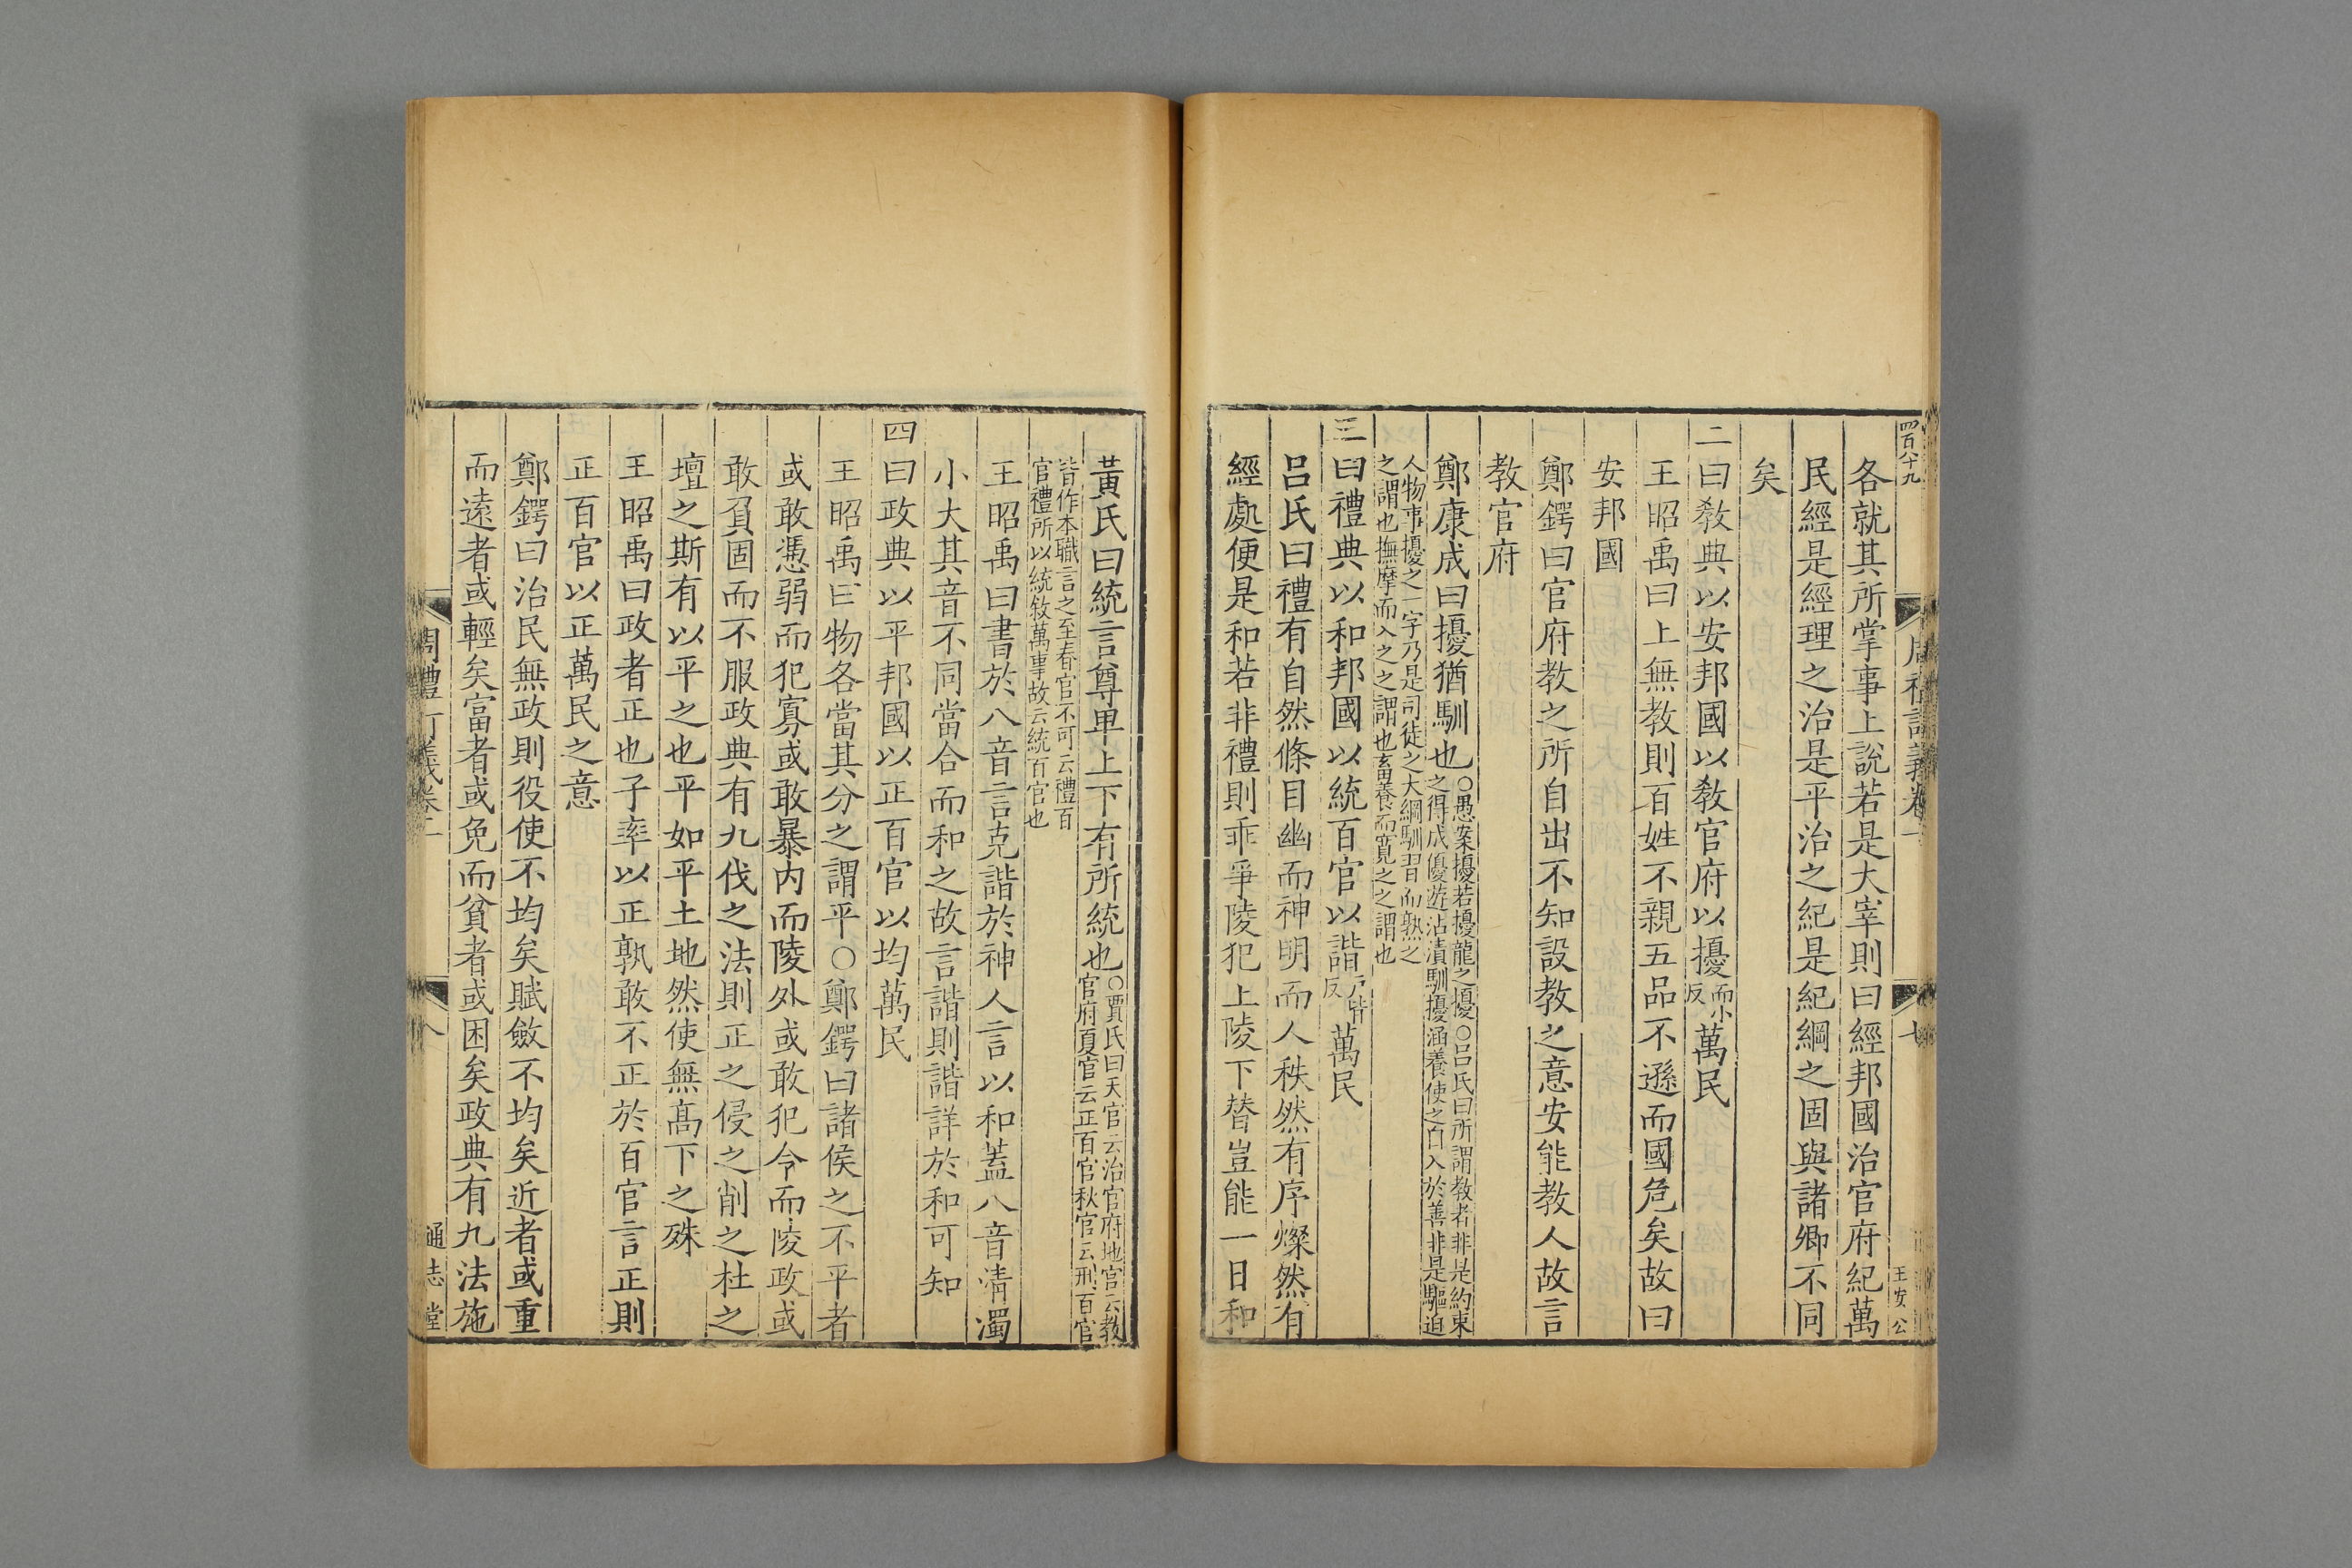 四百八十九
王安 公
各就其所掌事上說若是大宰則曰經邦國治官府紀萬
民經是經理之治是平治之紀是紀綱之固與諸卿不同
矣
二曰敎典以安邦國以敎官府以擾而小反萬民
王昭禹曰上無教則百姓不親五品不遜而國危矣故曰
安邦國
鄭鍔曰官府教之所自出不知設教之意安能教人故言
教官府
鄭康成曰擾猶馴也○愚案擾若擾龍之擾○呂氏曰所謂敎者非是約束
之得成優遊沾漬馴擾涵養使之自入於善非是驅迫
人物事擾之一字乃是司徒之大綱馴習而熟之
之謂也撫摩而入之之謂也畜養而寬之之謂也
三曰禮典以和邦國以統百官以諧戶皆反萬民
呂氏曰禮有自然條目幽而神明而人秩然有序燦然有
經處便是和若非禮則乖爭陵犯上陵下替豈能一日和
黃氏曰統言尊卑上下有所統也○賈氏曰天官云治官府地官云教
官府夏官云正百官秋官云刑百官
皆作本職言之至春官不可云禮百
官禮所以統敘萬事故云統百官也
王昭禹曰書於八音言克諧於神人言以和蓋八音淸濁
小大其音不同當合而和之故言諧則諧詳於和可知
四曰政典以平邦國以正百官以均萬民
王昭禹曰物各當其分之謂平○鄭鍔曰諸侯之不平者
或敢憑弱而犯寡或敢暴内而陵外或敢犯令而陵政或
敢負固而不服政典有九伐之法則正之侵之削之杜之
壇之斯有以平之也平如平土地然使無高下之殊
王昭禹曰政者正也子率以正孰敢不正於百官言正則
正百官以正萬民之意
鄭鍔曰治民無政則役使不均矣賦斂不均矣近者或重
而遠者或輕矣富者或免而貧者或困矣政典有九法施
周禮訂義卷二
八
通志堂